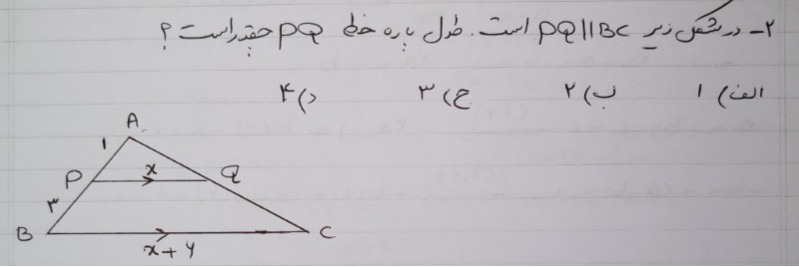 ۲- در شکل زیر PQ||BC است. طول پاره خط PQ چقدر است؟
الف) ۱ ب) ۲ ج) ۳ د) ۴
A
۱
P x Q
۳
B C
x+۶